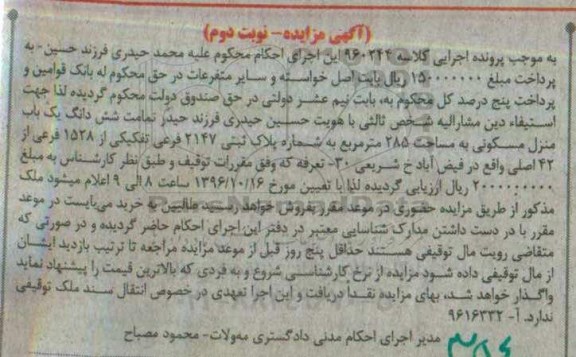 (آگهی مزایده- نوبت دوم)
به موجب پرونده اجرایی کلاسه ۹۶۰۲۴۴ این اجرای احکام محکوم علیه محمد حیدری فرزند حسین- به
پرداخت مبلغ ۱۵۰۰۰۰۰۰۰ ریال بابت اصل خواسته و سایر متفرعات در حق محکوم له بانک قوامین و
پرداخت پنج درصد کل محکوم به، بابت نیم عشر دولتی در حق صندوق دولت محکوم گردیده لذا جهت
استیفاء دین مشارالیه شخص ثالثی با هویت حسین حیدری فرزند حیدر تمامت شش دانگ یک باب
منزل مسکونی به مساحت ۲۸۵ مترمربع به شماره پلاک ثبتی ۲۱۴۷ فرعی تفکیکی از ۱۵۲۸ فرعی از
۴۲ اصلی واقع در فیض آباد خ شریعتی ۳۰- تعرفه که وفق مقررات توقیف و طبق نظر کارشناس به مبلغ
۲۰۰۰۰۰۰۰۰ ریال ارزیابی گردیده لذا با تعیین مورخ ۱۳۹۶/۱۰/۱۶ ساعت ۸ الی ۹ اعلام میشود ملک
مذکور از طریق مزایده حضوری در موعد مقرر بفروش خواهد رسید طالبین به خرید می‌بایست در موعد
مقرر با در دست داشتن مدارک شناسایی معتبر در دفتر این اجرای احکام حاضر گردیده و در صورتی که
متقاضی رویت مال توقیفی هستند حداقل پنج روز قبل از موعد مزایده مراجعه تا ترتیب بازدید ایشان
از مال توقیفی داده شود مزایده از نرخ کارشناسی شروع و به فردی که بالاترین قیمت را پیشنهاد نماید
واگذار خواهد شد، بهای مزایده نقداً دریافت و این اجرا تعهدی در خصوص انتقال سند ملک توقیفی
ندارد. آ- ۹۶۱۶۳۳۲
مدیر اجرای احکام مدنی دادگستری مه‌ولات- محمود مصباح